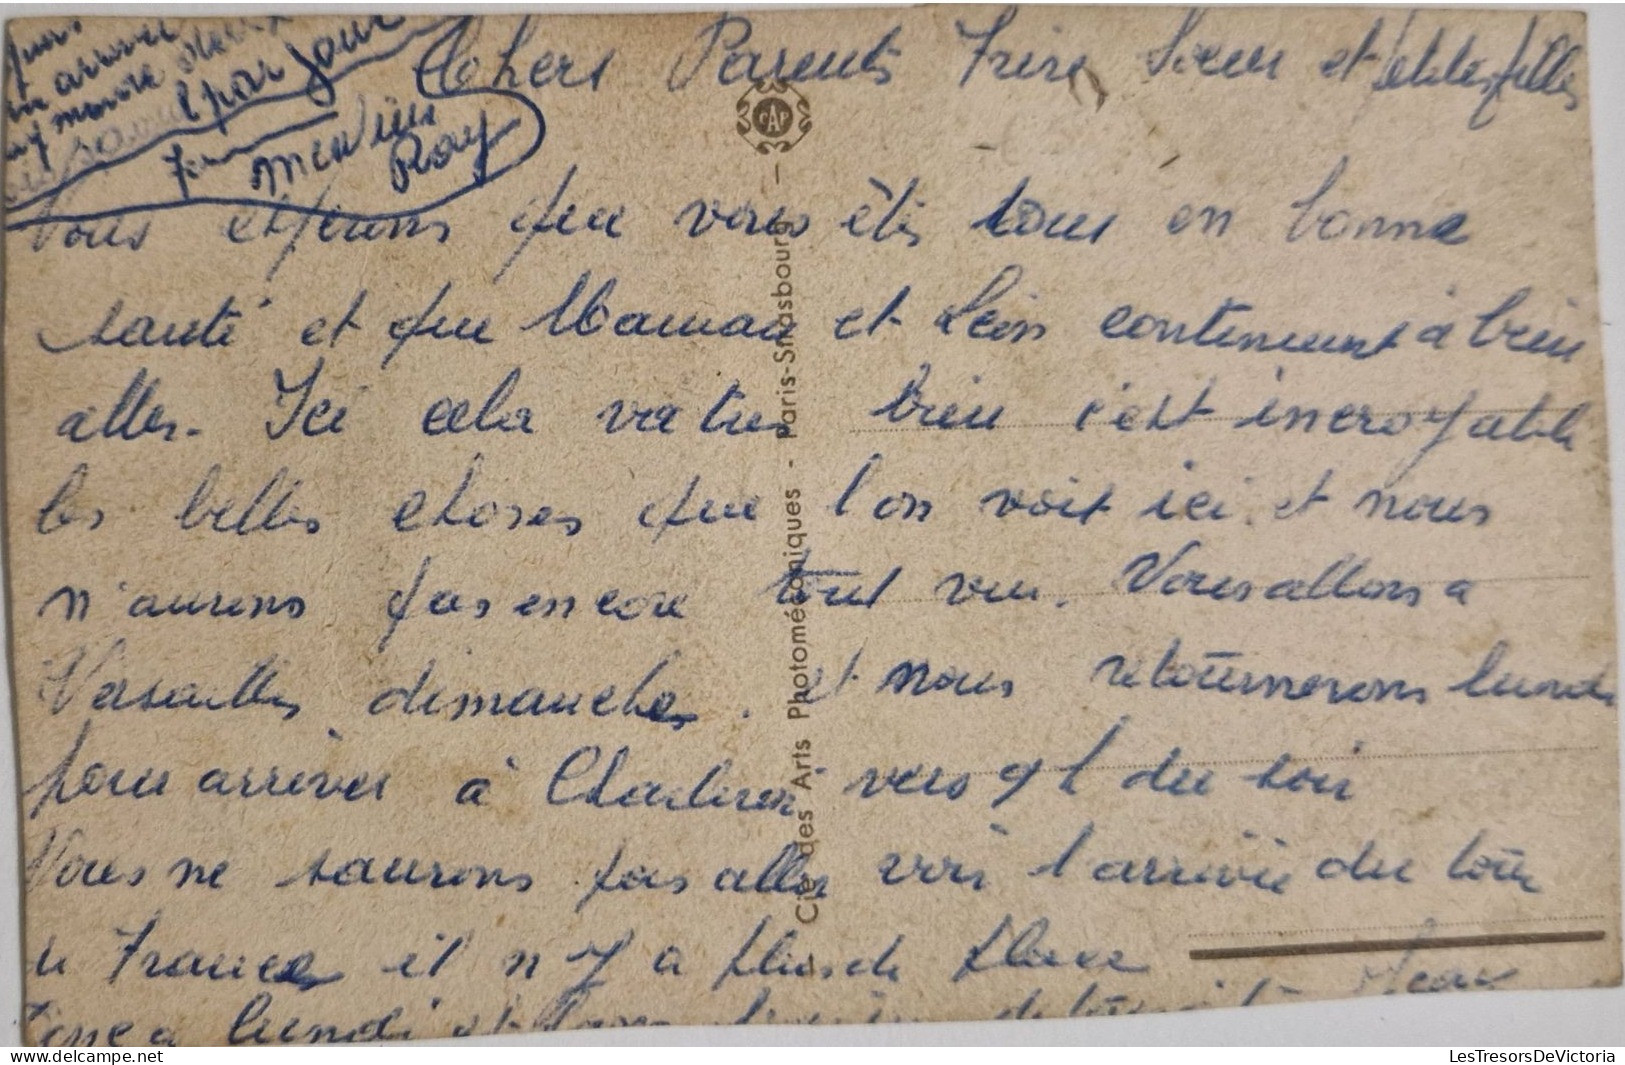 arrivée
par jour
Mesdieu
Roy
Chers Parents Frère Soeur et petites filles
CAP
Nous espérons que vous êtes tous en bonne
santé et que Maman et Léon continuent à bien
aller. Ici cela va très bien c'est incroyable
les belles choses que l'on voit ici et nous
n'aurons pas encore tout vu. Nous allons a
Versailles dimanche. et nous retournerons lundi
pour arriver à vers 9 h du soir
Nous ne saurons pas aller voir l'arrivée du tour
de France il n'y a plus de place
a lundi et
Cie des Arts Photomécaniques - Paris-Strasbourg -
LesTresorsDeVictoria